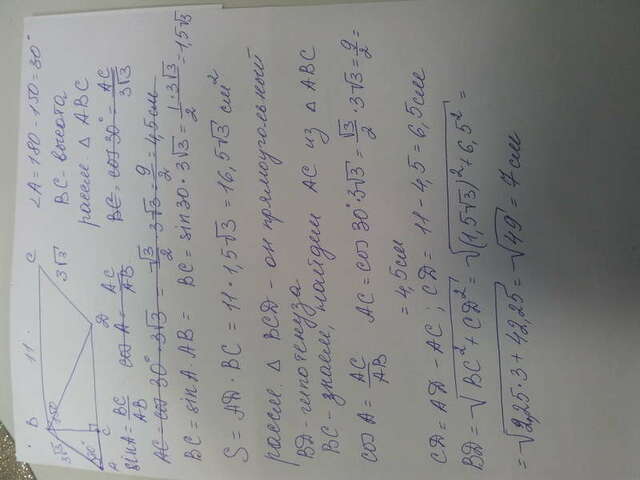 B 11. C
3√3 3√3
150°
30°
A C D
∠A = 180 - 150 = 30°
BC - высота
рассм △ ABC
sinA = BC/AB cos A = AC/AB BC = cos 30° = AC/3√3
AC = cos 30° · 3√3 = √3/2 · 3√3 = 9/2 = 4,5 см
BC = sin A · AB = BC = sin 30 · 3√3 = 1·3√3/2 = 1,5√3
S = AD · BC = 11 · 1,5√3 = 16,5√3 см²
рассм. △ BCD - он прямоугольный
BD - гипотенуза
BC - знаем, найдем AC из △ ABC
cos A = AC/AB AC = cos 30° · 3√3 = √3/2 · 3√3 = 9/2 =
= 4,5 см
CD = AD - AC; CD = 11 - 4,5 = 6,5 см
BD = √BC² + CD² = √(1,5√3)² + 6,5² =
= √2,25 · 3 + 42,25 = √49 = 7 см